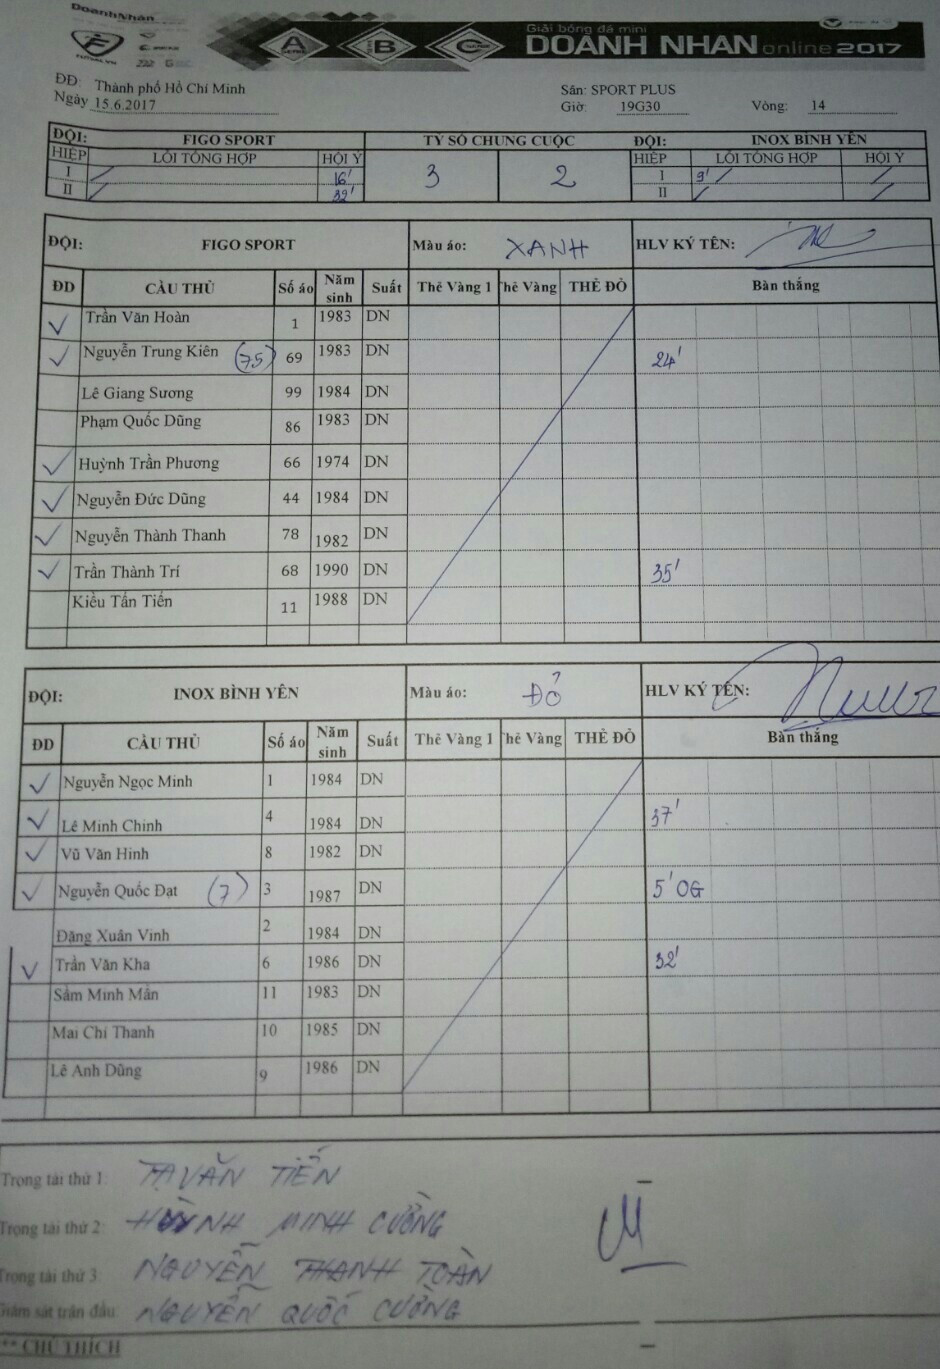 DoanhNhân
FUTSAL.VN
A B C Giải bóng đá mini
DOANH NHAN online 2017
ĐĐ: Thành phố Hồ Chí Minh Sân: SPORT PLUS
Ngày 15.6.2017 Giờ: 19G30 Vòng: 14
ĐỘI: FIGO SPORT TỶ SỐ CHUNG CUỘC ĐỘI: INOX BÌNH YÊN
HIỆP LỖI TỔNG HỢP HỘI Ý 3 2 HIỆP LỖI TỔNG HỢP HỘI Ý
I 16' I 9'
II 32' II
ĐỘI: FIGO SPORT Màu áo: XANH HLV KÝ TÊN:
ĐD CẦU THỦ Số áo Năm sinh Suất Thẻ Vàng 1 Thẻ Vàng THẺ ĐỎ Bàn thắng
✓ Trần Văn Hoàn 1 1983 DN
✓ Nguyễn Trung Kiên (75) 69 1983 DN 24'
Lê Giang Sương 99 1984 DN
Phạm Quốc Dũng 86 1983 DN
✓ Huỳnh Trần Phương 66 1974 DN
✓ Nguyễn Đức Dũng 44 1984 DN
✓ Nguyễn Thành Thanh 78 1982 DN
✓ Trần Thành Trí 68 1990 DN 35'
Kiều Tấn Tiến 11 1988 DN
ĐỘI: INOX BÌNH YÊN Màu áo: ĐỎ HLV KÝ TÊN:
ĐD CẦU THỦ Số áo Năm sinh Suất Thẻ Vàng 1 Thẻ Vàng THẺ ĐỎ Bàn thắng
✓ Nguyễn Ngọc Minh 1 1984 DN
✓ Lê Minh Chinh 4 1984 DN 37'
✓ Vũ Văn Hinh 8 1982 DN
✓ Nguyễn Quốc Đạt (7) 3 1987 DN 5' OG
Đặng Xuân Vinh 2 1984 DN
✓ Trần Văn Kha 6 1986 DN 32'
Sầm Minh Mẫn 11 1983 DN
Mai Chí Thanh 10 1985 DN
Lê Anh Dũng 9 1986 DN
Trọng tài thứ 1: TẠ VĂN TIẾN
Trọng tài thứ 2: HUỲNH MINH CƯỜNG
Trọng tài thứ 3 NGUYỄN THANH TOÀN
Giám sát trận đấu: NGUYỄN QUỐC CƯỜNG
** CHÚ THÍCH